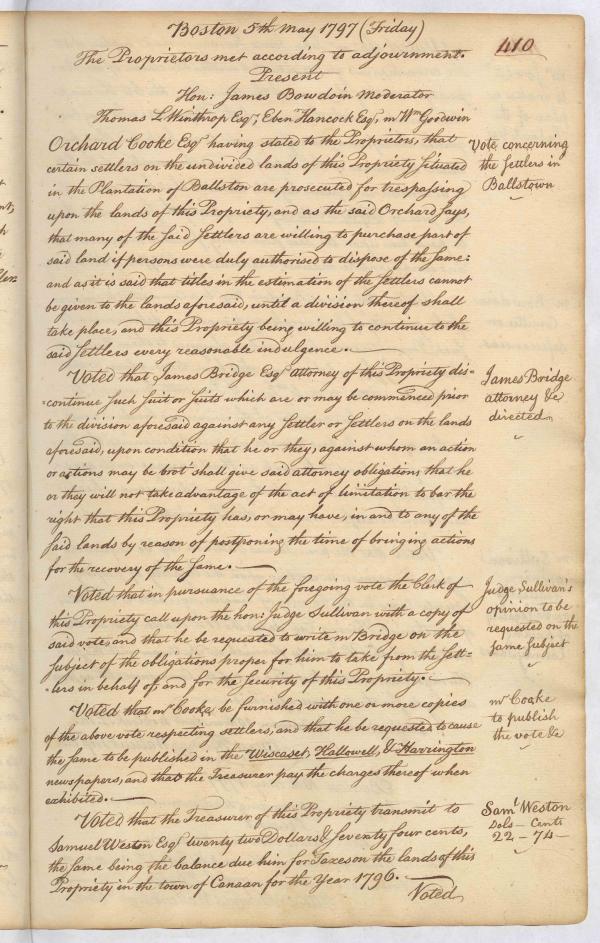 Boston 5th May 1797 (Friday)
410
The Proprietors met according to adjournment.
Present
Hon: James Bowdoin Moderator
Thomas L Winthrop Esqr, Ebenr Hancock Esqr, mr Wm Goodwin
Orchard Cooke Esqr having stated to the Proprietors, that
certain settlers on the undivided lands of this Propriety situated
in the Plantation of Ballston are prosecuted for trespassing
upon the lands of this Propriety, and as the said Orchard says,
that many of the said Settlers are willing to purchase part of
said land if persons were duly authorised to dispose of the same:
and as it is said that titles in the estimation of the settlers cannot
be given to the lands aforesaid, until a division thereof shall
take place, and this Propriety being willing to continue to the
said settlers every reasonable indulgence.
Vote concerning
the Settlers in
Ballstown
Voted that James Bridge Esqr attorney of this Propriety dis=
=continue such suit or suits which are or may be commenced prior
to the division aforesaid against any settler or settlers on the lands
aforesaid, upon condition that he or they, against whom an action
or actions may be brot shall give said attorney obligations that he
or they will not take advantage of the act of limitation to bar the
right that this Propriety has, or may have, in and to any of the
said lands by reason of postponing the time of bringing actions
for the recovery of the same.
James Bridge
attorney &c
directed
Voted that in pursuance of the foregoing vote the Clerk of
this Propriety call upon the hon: Judge Sullivan with a copy of
said vote, and that he be requested to write mr Bridge on the
subject of the obligations proper for him to take from the Sett=
=lers in behalf of, and for the security of this Propriety.
Judge Sullivan's
opinion to be
requested on the
same subject
Voted that mr Cooke be furnished with one or more copies
of the above vote respecting settlers, and that he be requested to cause
the same to be published in the Wiscaset, Hallowell, & Harrington
newspapers, and that the Treasurer pay the charges thereof when
exhibited.
mr Coake
to publish
the vote &c
Voted that the Treasurer of this Propriety transmit to
Samuel Weston Esqr twenty two Dollars & seventy four cents,
the same being the balance due him for Taxes on the lands of this
Propriety in the town of Canaan for the Year 1796.
Saml Weston
Dols - Cents
22 - 74 -
Voted